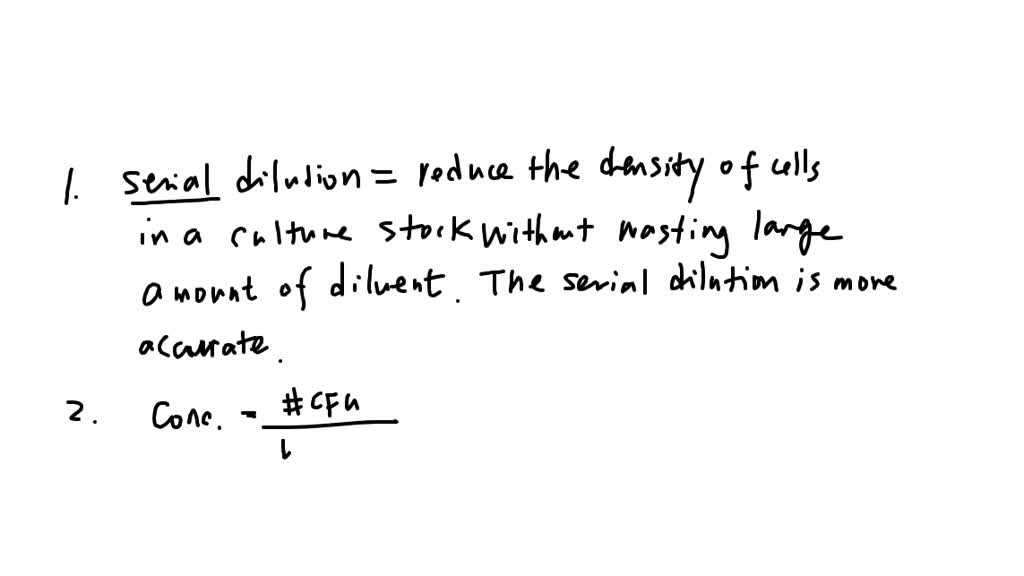 1. serial dilution = reduce the density of cells
in a culture stock without wasting large
amount of diluent. The serial dilution is more
accurate.
2. Conc. = #CFU